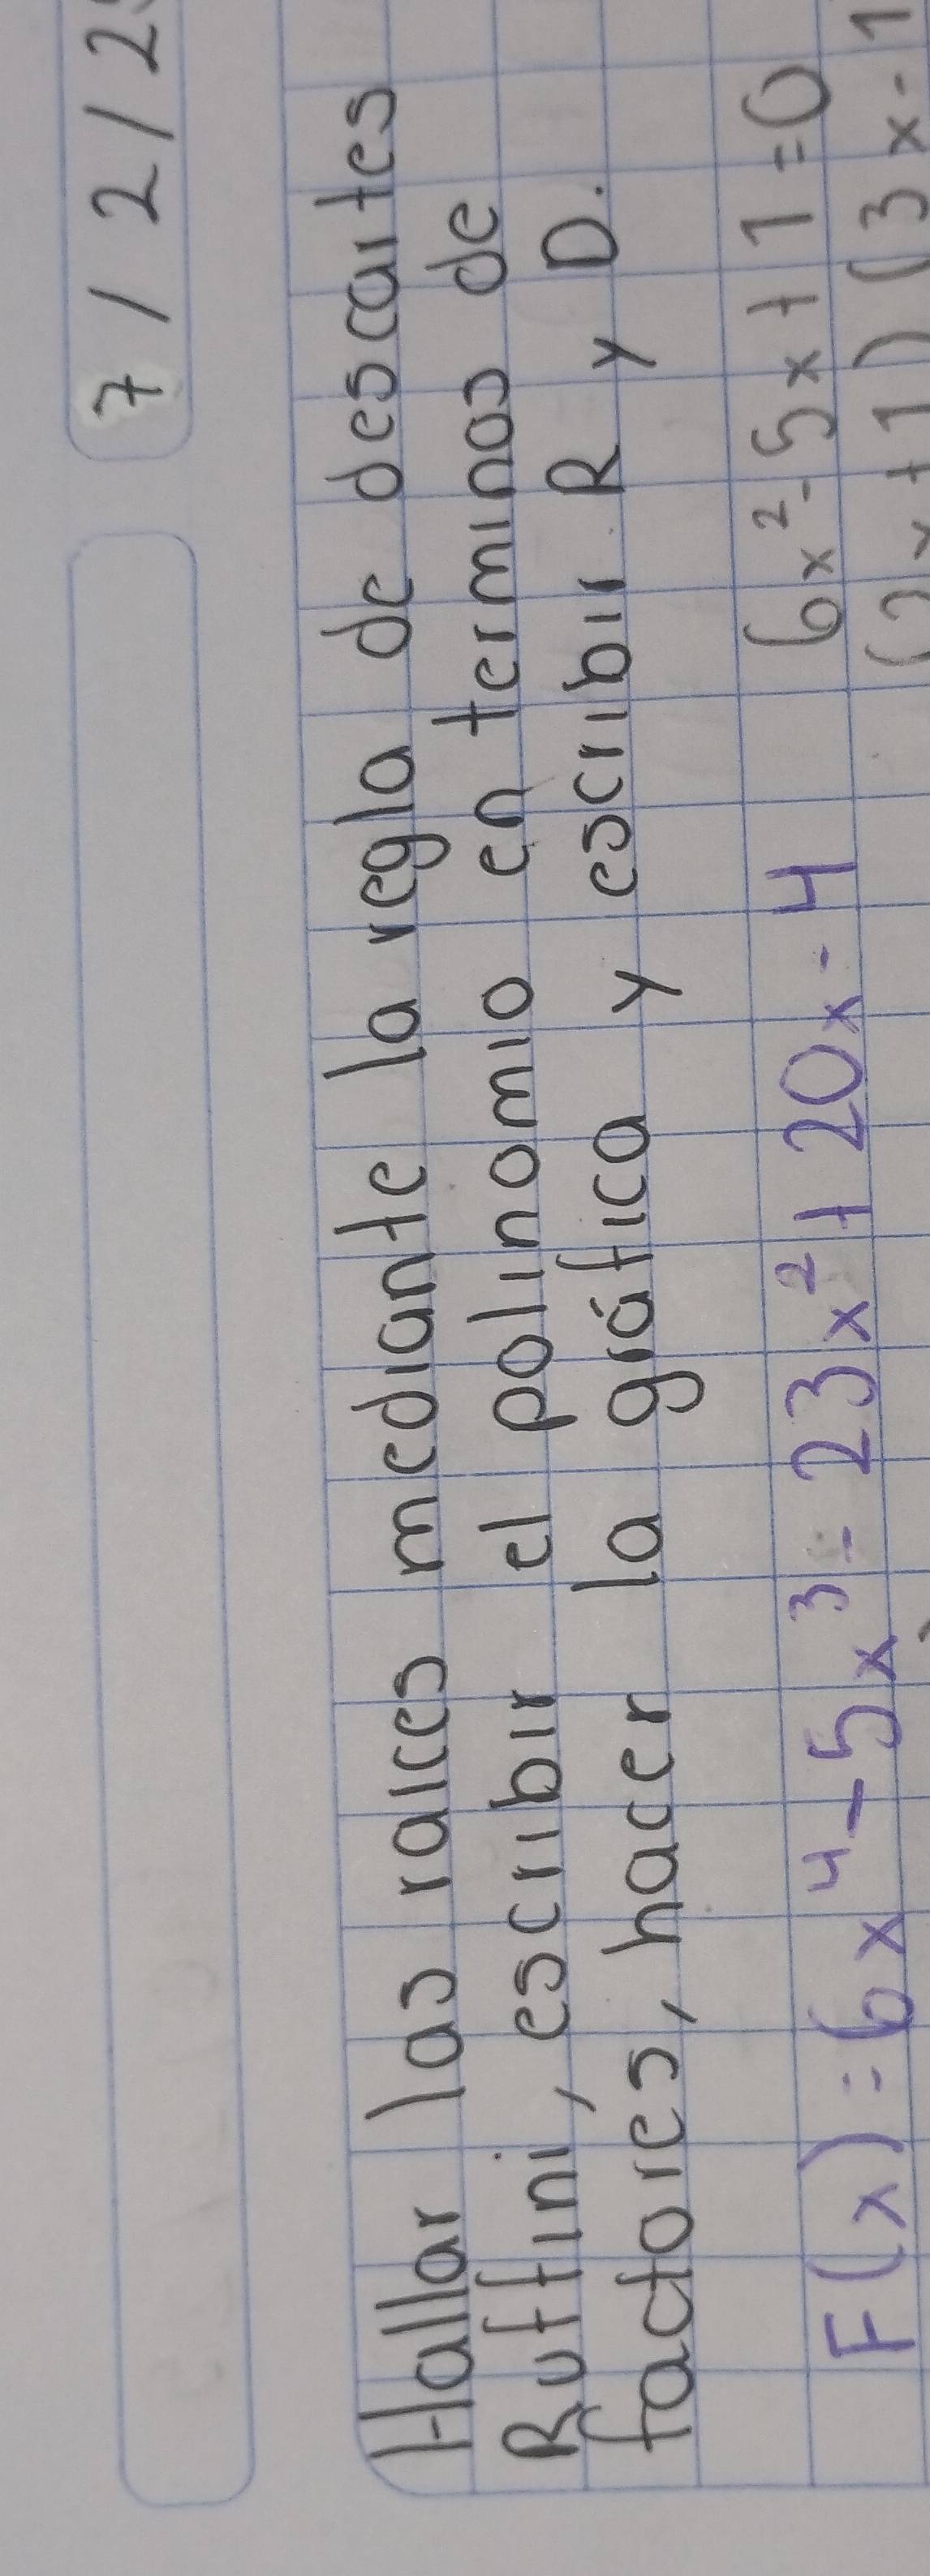 7/2/2
Hallar las raices mediante la regla de descartes
Ruffini, escribir el polinomio en terminos de
factores, hacer la gráfica y escribir R y D.
F(x)=6x⁴-5x³-23x²+20x-4 6x²-5x+1=0
(2x+1)(3x-1